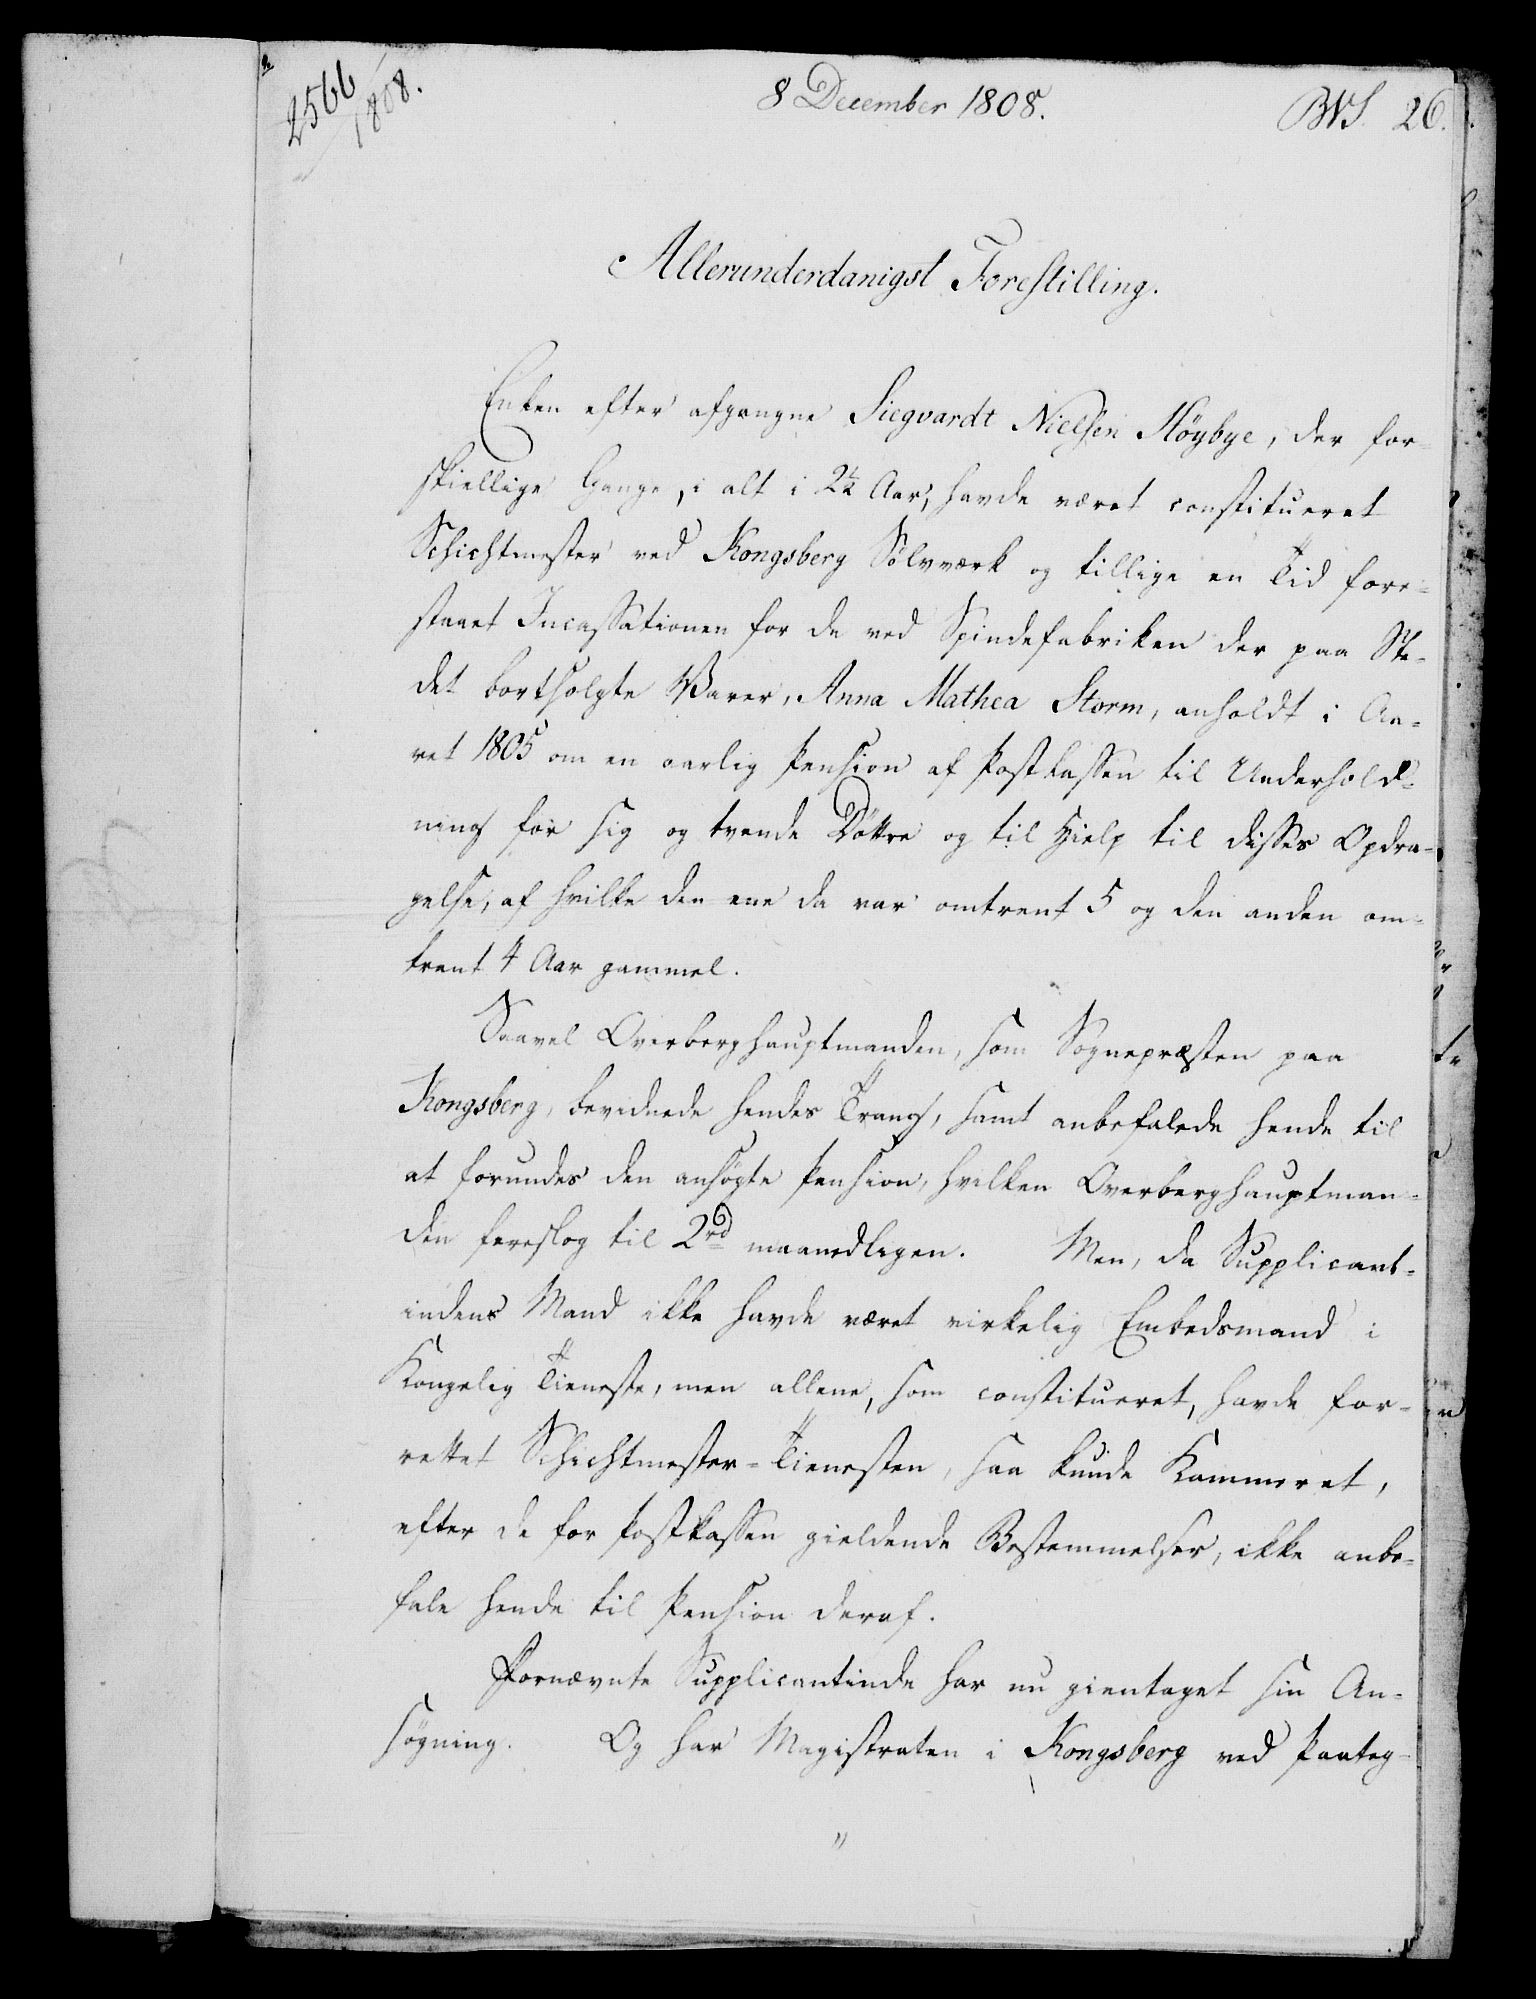 2566
1808.
8 December 1808.
BVS. 26.
Allerunderdanigst Forestilling.
Enken efter afgangne Siegvardt Nielsen Höybye, der for-
skiellige Gange, i alt i 2½ Aar, havde været constitueret
Schichtmester ved Kongsberg Sölvværk og tillige en Tid fore-
staaet Incassationen for de ved Spindefabriken der paa Ste-
det bortsolgte Varer, Anna Mathea Storm, anholdt i Aa-
ret 1805 om en aarlig Pension af Postkassen til Underhold-
ning for sig og tvende Döttre og til Hielp til disses Opdra-
gelse, af hvilke den ene da var omtrent 5 og den anden om-
trent 4 Aar gammel.
Saavel Overberghauptmanden, som Sognepræsten paa
Kongsberg, bevidnede hendes Trang, samt anbefalede hende til
at forundes den ansögte Pension, hvilken Overberghauptman-
den foreslog til 2 rd maanedligen. Men, da Supplicant-
indens Mand ikke havde været virkelig Embedsmand i
Kongelig Tieneste, men allene, som constitueret, havde for-
rettet Schichtmester-Tienesten, saa kunde Kammeret,
efter de for Postkassen gieldende Bestemmelser, ikke anbe-
fale hende til Pension deraf.
Fornævnte Supplicantinde har nu gientaget sin An-
sögning. Og har Magistraten i Kongsberg ved Paateg-
"